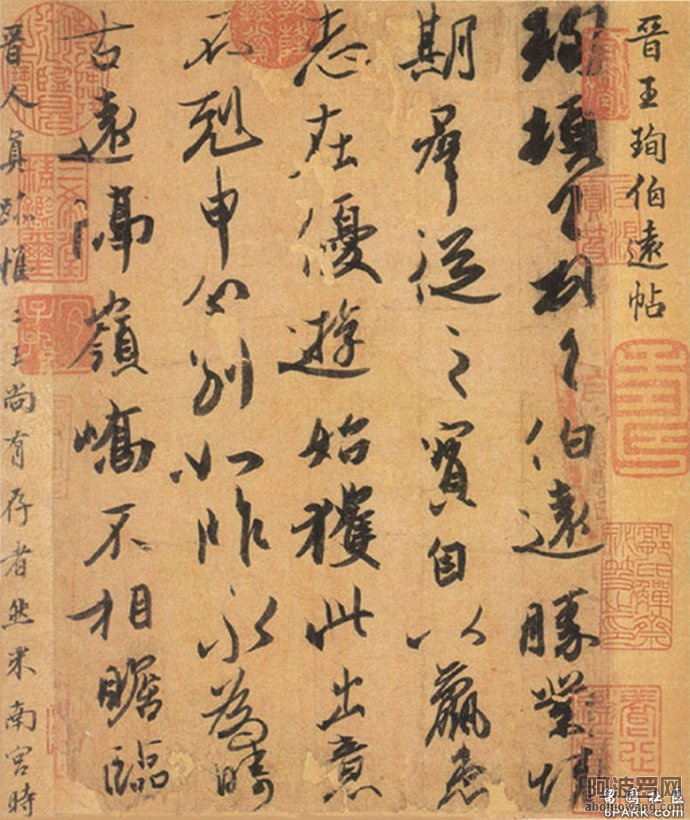 晉王珣伯遠帖
珣頓首頓首伯遠勝業情
期羣從之寶自以羸患
志在優遊始獲此出意
不剋申分別如昨永為疇
古遠隔嶺嶠不相瞻臨
晉人真跡惟二王尚有存者然米南宮時
阿波罗网
aboluowang.com
留园社区
6PARK.com